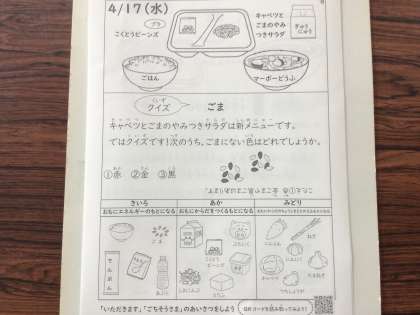 4/17(水)
プラ
こくとうビーンズ
キャベツと
ごまのやみ
つきサラダ
ぎゅう
にゅう
ごはん
マーボーどうふ
クイズ ごま
キャベツとごまのやみつきサラダは新メニューです。
ではクイズです!次のうち、ごまにない色はどれでしょうか。
①赤 ②金 ③黒
きいろ あか みどり
おもにエネルギーのもとになる おもにからだをつくるもとになる
ごま
でんぷん
こくとう
ビーンズ
にんじん
ねぎ
「いただきます」「ごちそうさま」のあいさつをしよう